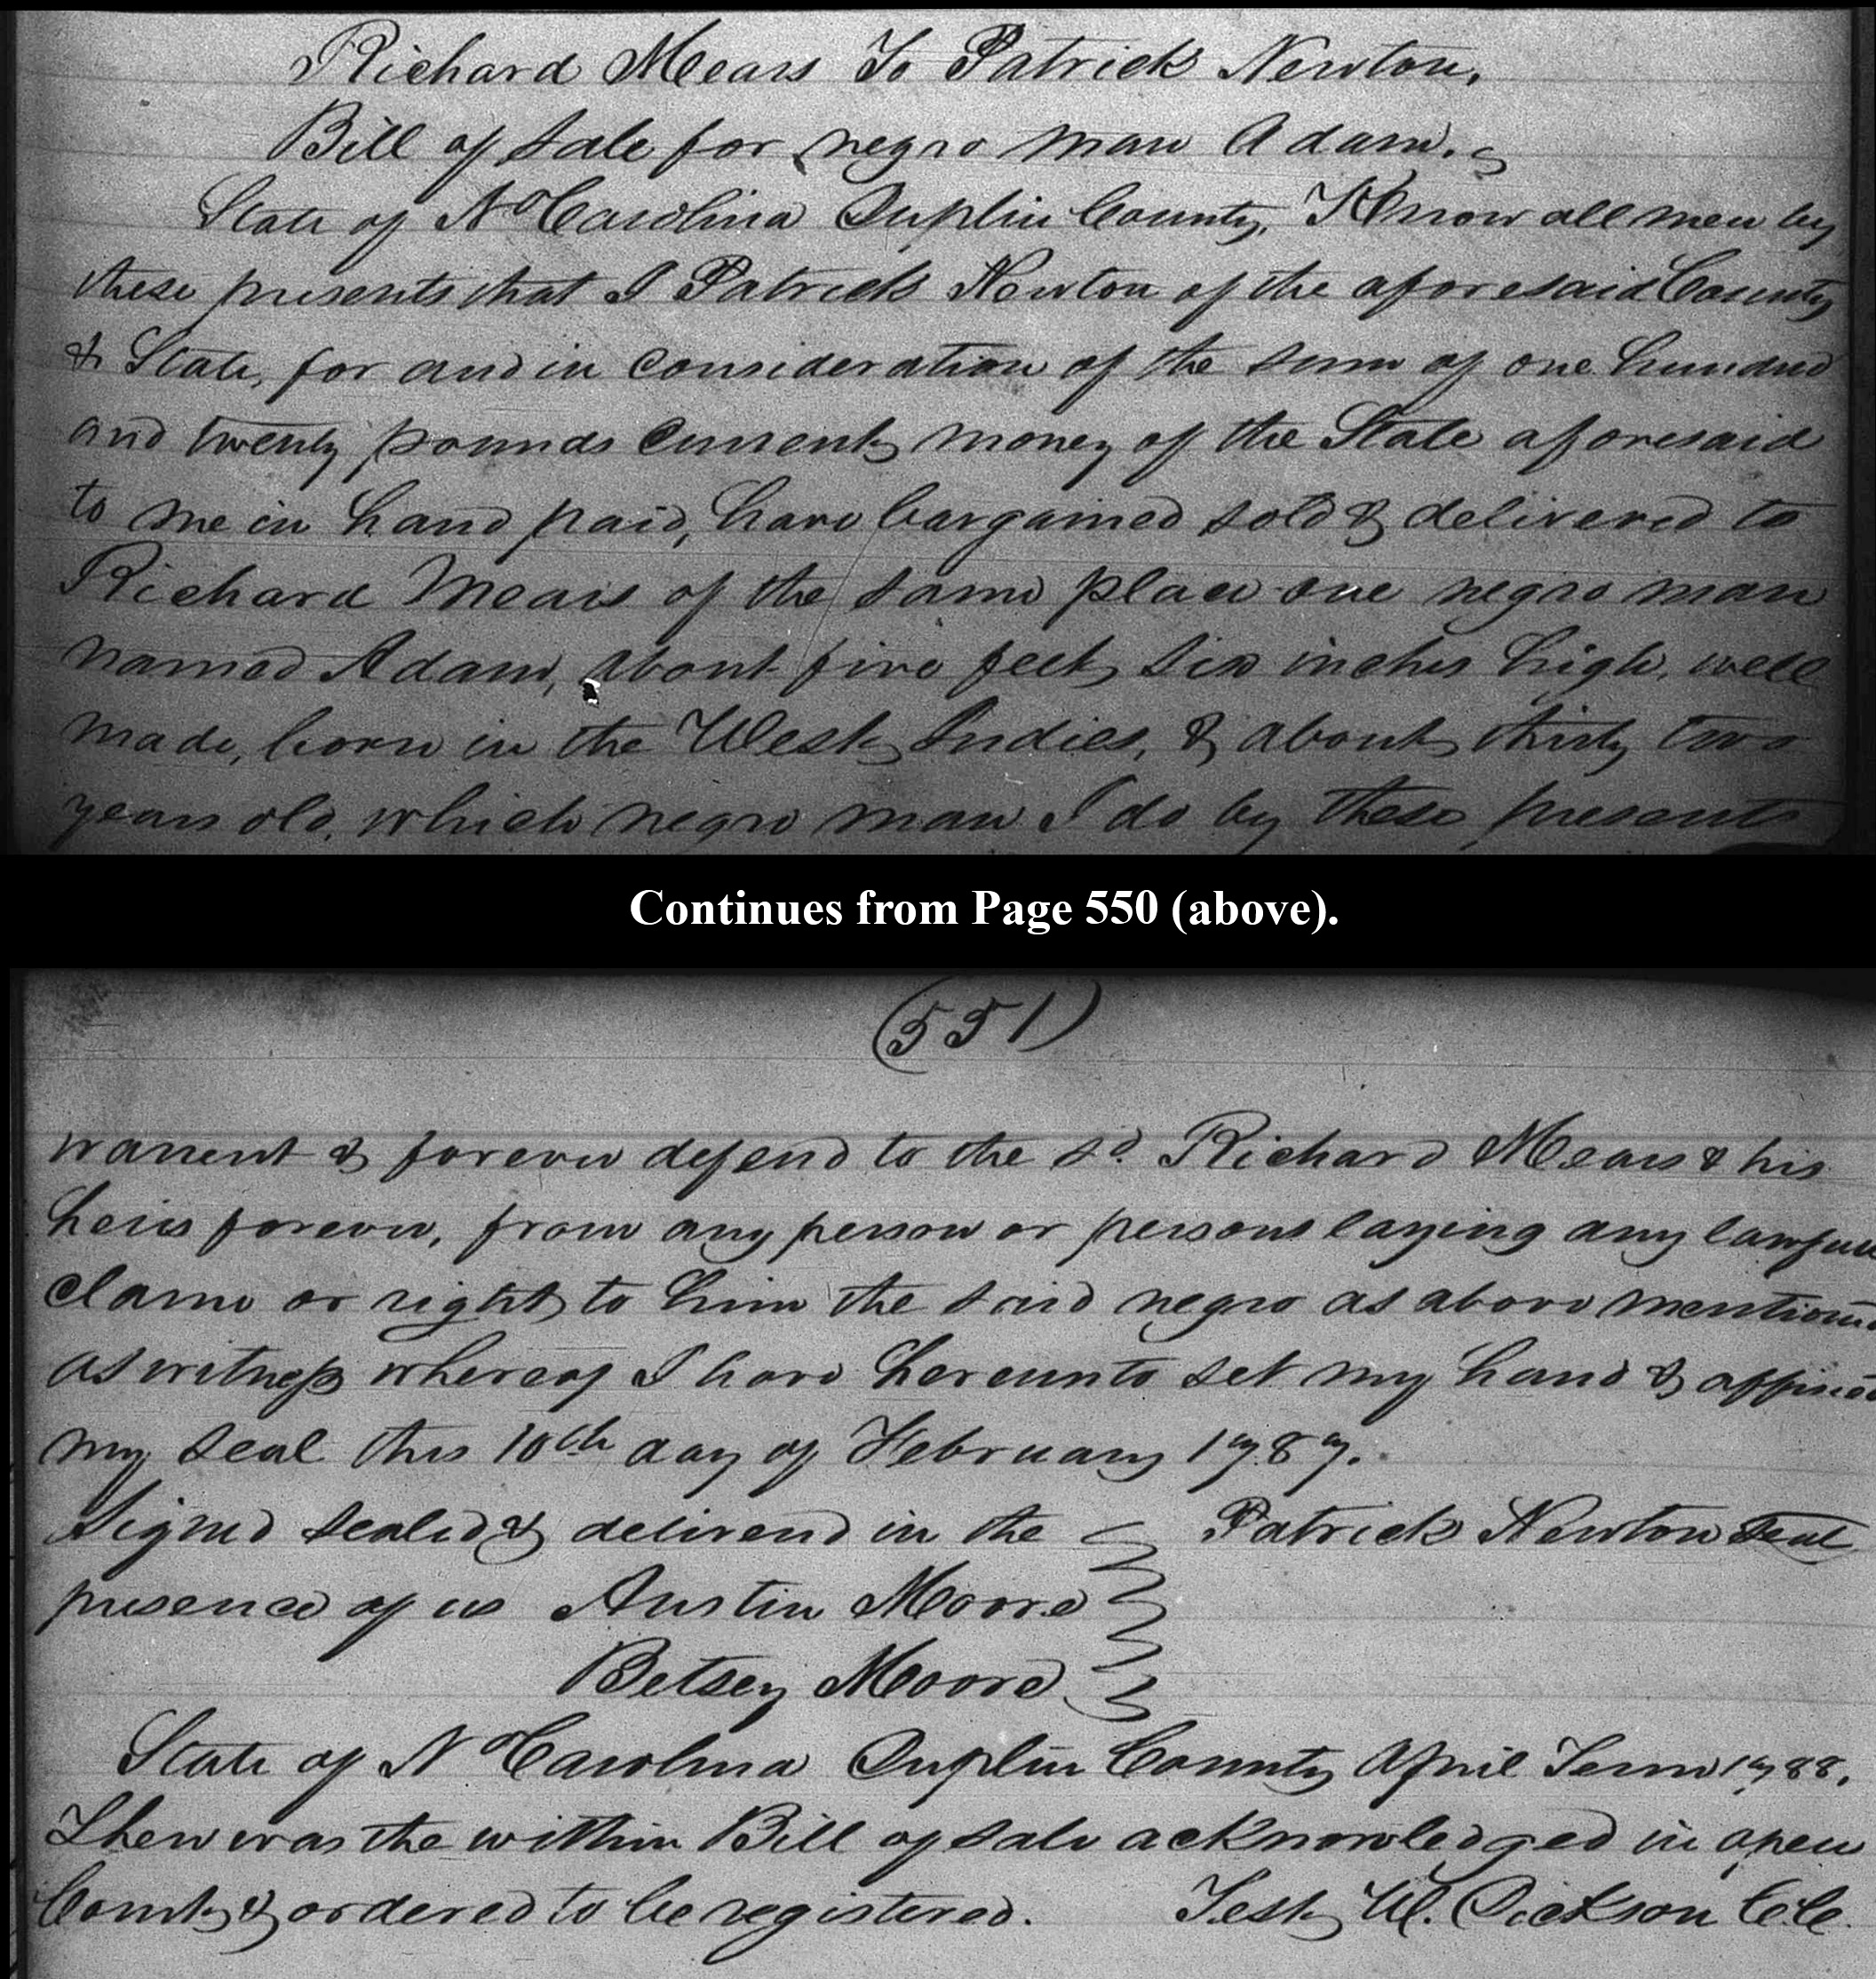 Richard Mears To Patrick Newton,
Bill of Sale for negro man Adam.
State of No Carolina Duplin County, Know all men by
these presents that I Patrick Newton of the aforesaid County
& State, for and in consideration of the sum of one hundred
and twenty pounds current money of the State aforesaid
to me in hand paid, have bargained sold & delivered to
Richard Mears of the same place one negro man
named Adam, about five feet six inches high, well
made, born in the West Indies, & about thirty two
years old, which negro man I do by these presents
Continues from Page 550 (above).
(551)
warrent & forever defend to the sd. Richard Mears & his
heirs forever, from any person or persons laying any lawful
clame or right to him the said negro as above mentioned
as witness whereof I have hereunto set my hand & affixed
my seal this 10th day of February 1787.
Signed sealed & delivered in the Patrick Newton Seal
presence of us Austin Moore
Betsey Moore
State of No Carolina Duplin County April Term 1788.
Then was the within Bill of sale acknowledged in open
County & ordered to be registered. Test, W. Dickson C.C.